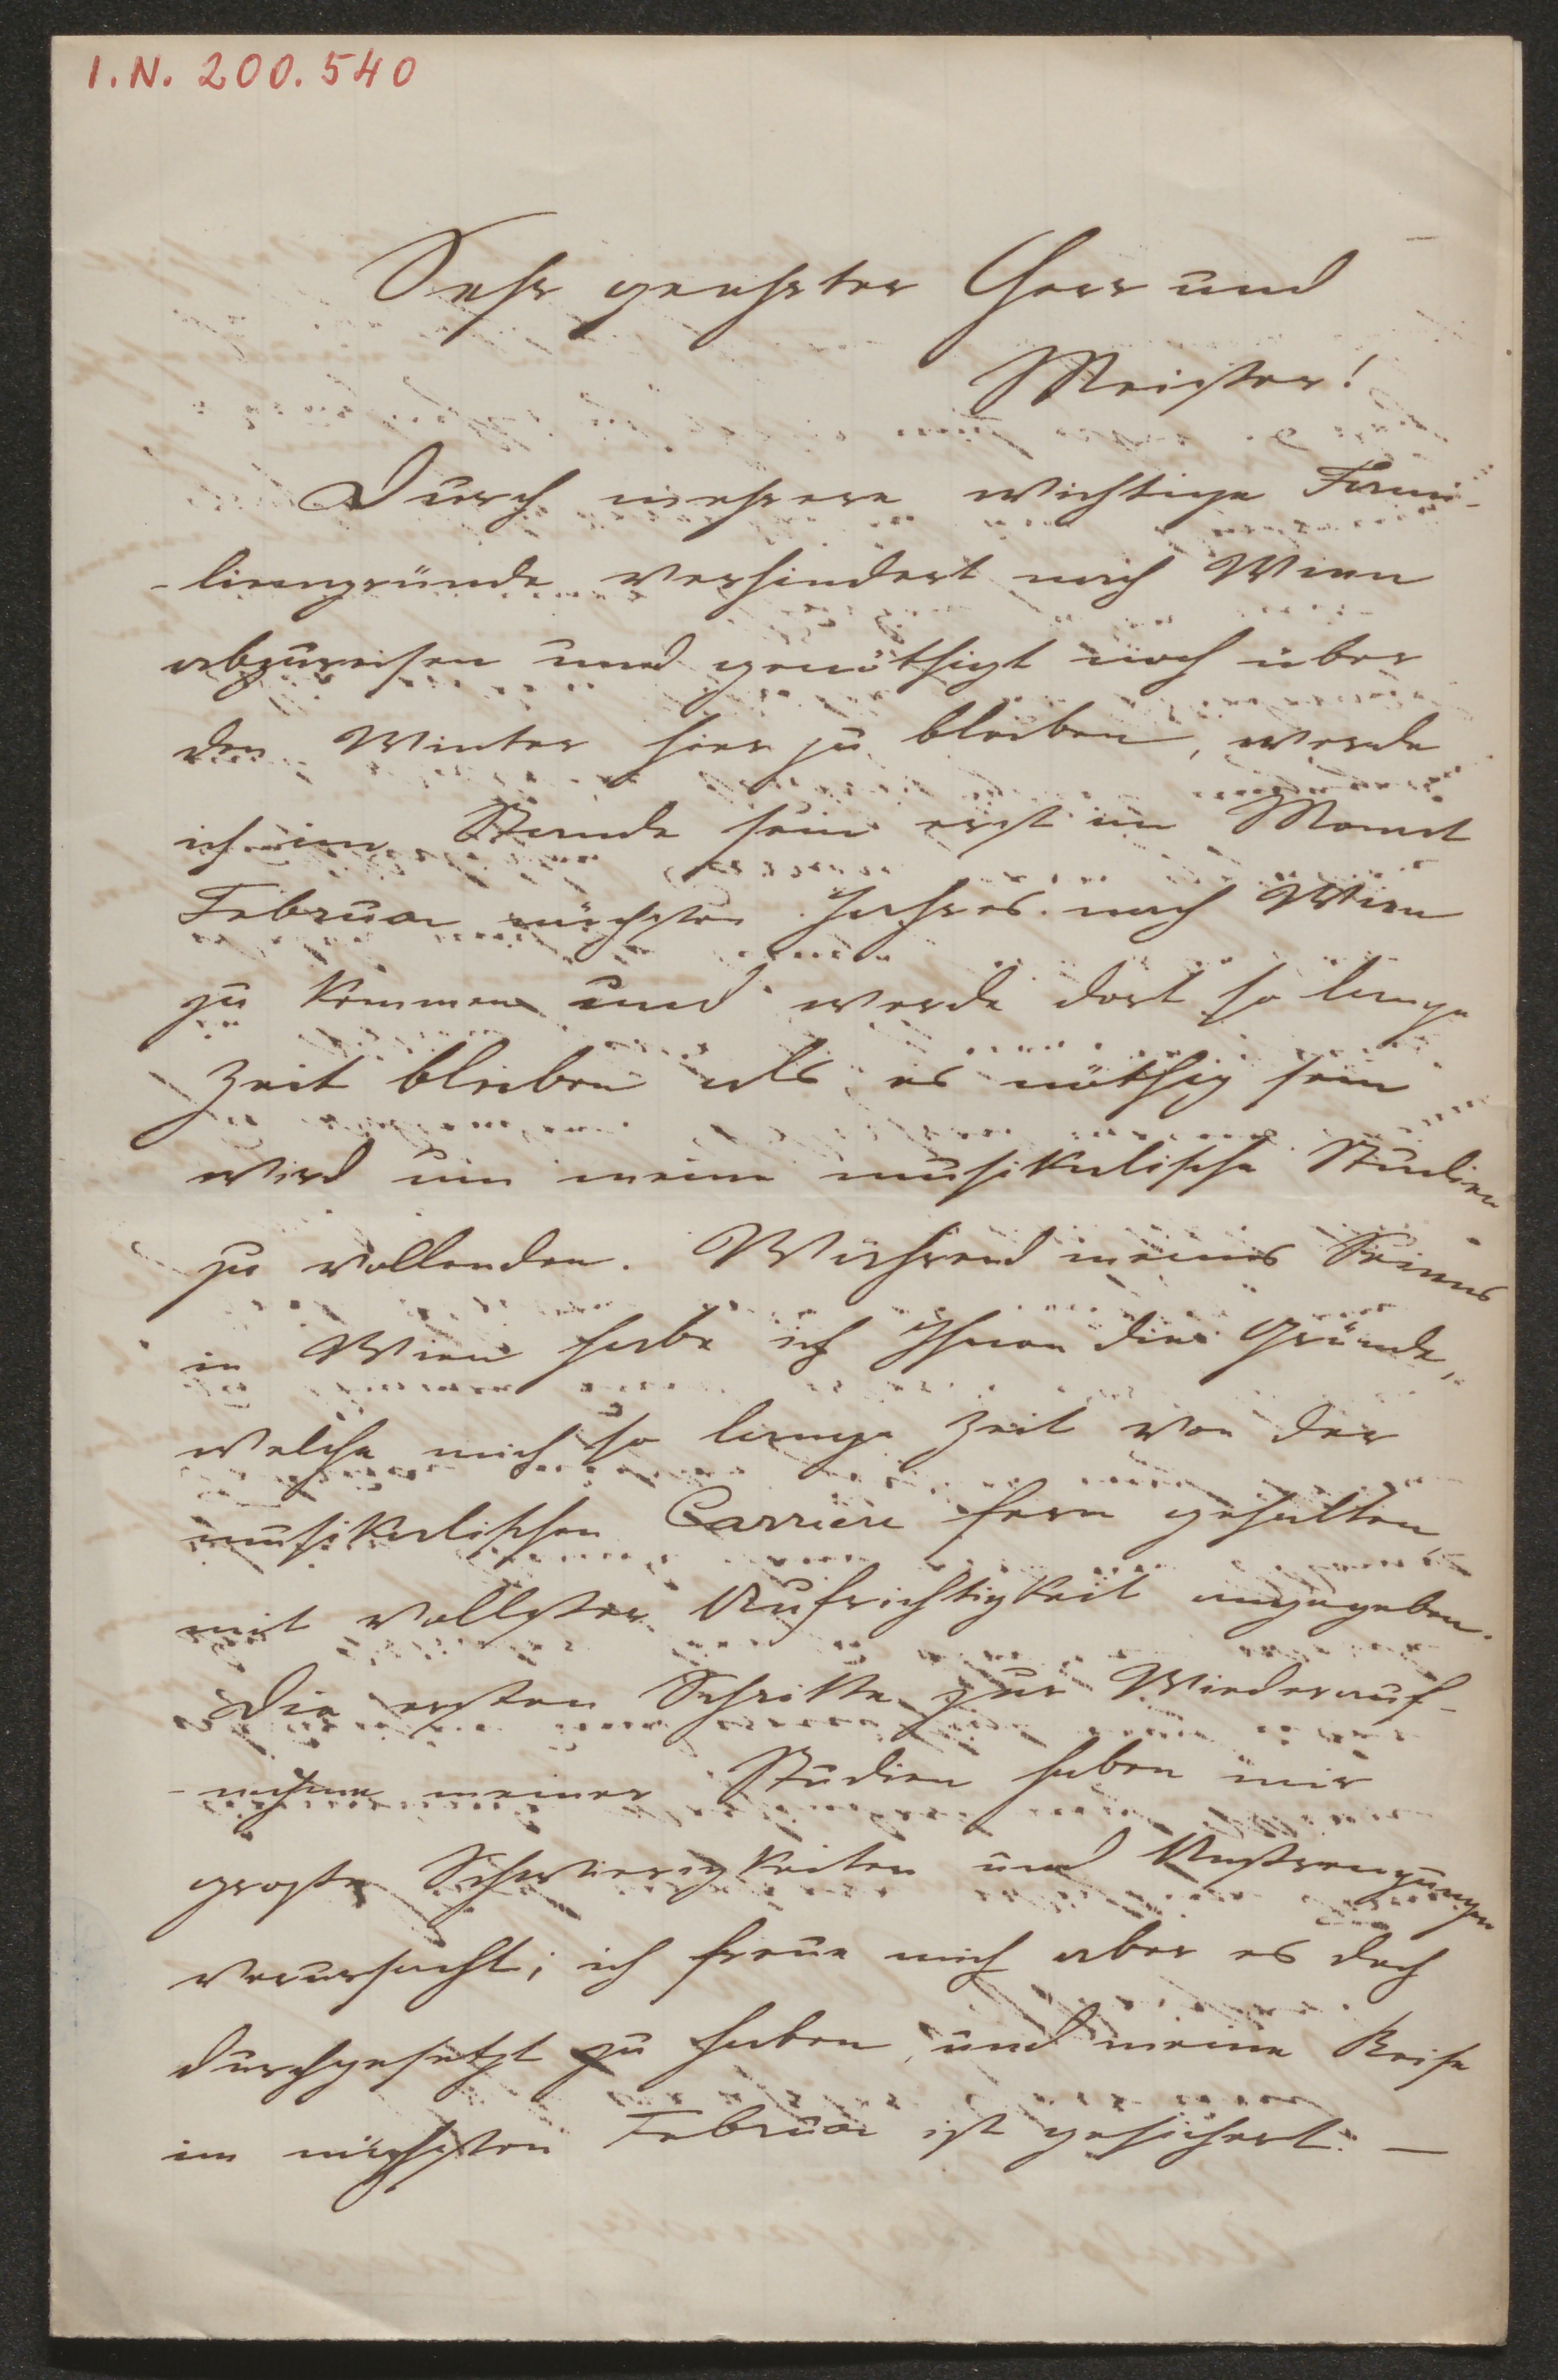 I.N. 200.540
Sehr geehrter Herr und
Meister!
Durch mehrere wichtige Fami-
-liengründe verhindert nach Wien
abzureisen und genöthigt noch über
den Winter hier zu bleiben, werde
ich im Stande sein erst im Monat
Februar nächsten Jahres nach Wien
zu kommen und werde dort so lange
Zeit bleiben als es nöthig sein
wird um meine musikalische Studien
zu vollenden. Während meines Seins
in Wien habe ich Ihnen die Gründe,
welche mich so lange Zeit von der
musikalischen Carriere fern gehalten,
mit vollster Aufrichtigkeit angegeben.
Die ersten Schritte zur Wiederauf-
-nahme meiner Studien haben mir
große Schwierigkeiten und Anstrengungen
verursacht; ich freue mich aber es doch
durchgesetzt zu haben und meine Reise
im nächsten Februar ist gesichert. —